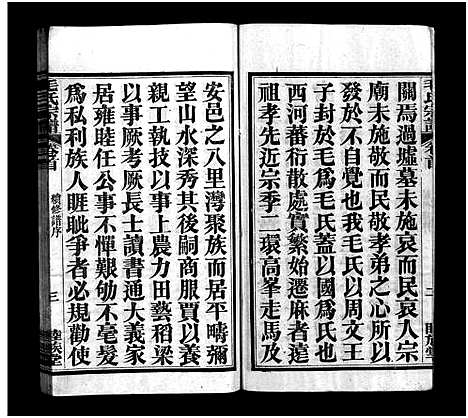 關焉過墟墓未施哀而民哀人宗
廟未施敬而民敬孝弟之心所以
發於不自覺也我毛氏以周文王
子封於毛爲毛氏蓋以國爲氏也
西河蕃衍散處實繁始遷麻者諱
祖孝先近宗季二環高峯走馬及
二
毛氏宗譜
卷首
續修譜序
三
安邑之八里灣聚族而居平疇彌
望山水深秀其後嗣商服賈以養
親工執技以事上農力田藝稻粱
以事厥考厥長士讀書通大義家
居雍睦任公事不憚艱劬不毫髮
爲私利族人匪眦爭者必規勸使